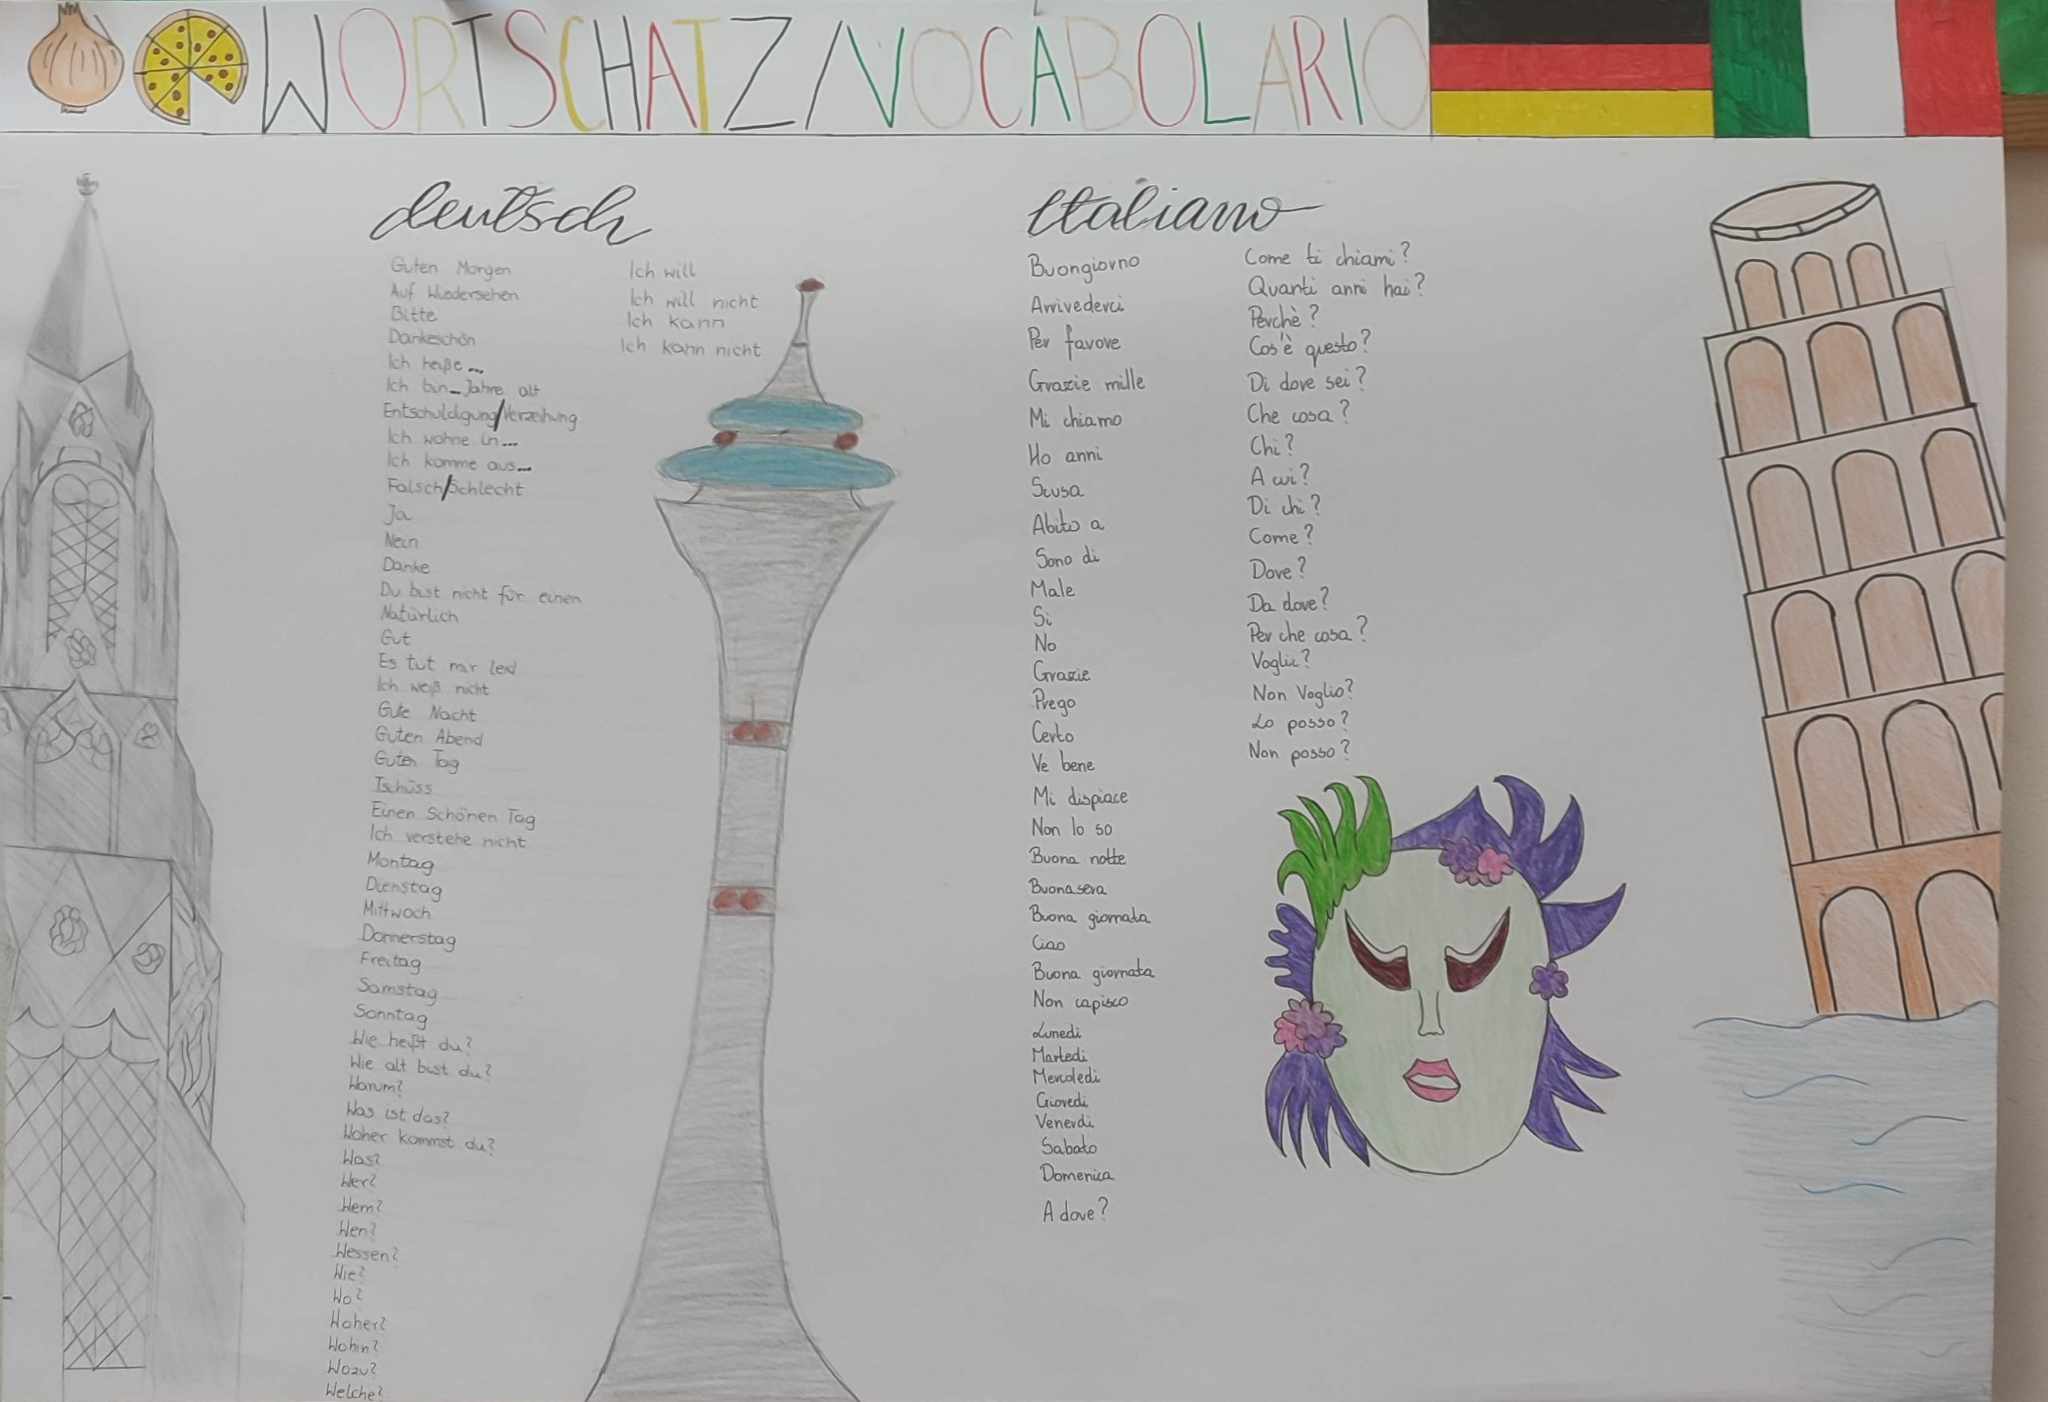 WORTSCHATZ/VOCABOLARIO
deutsch
Guten Morgen
Auf Wiedersehen
Bitte
Dankeschön
Ich heiße...
Ich bin_Jahre alt
Entschuldigung/Verzeihung
Ich wohne in...
Ich komme aus...
Falsch/Schlecht
Ja
Nein
Danke
Du bist nicht für einen
Natürlich
Gut
Es tut mir leid
Ich weiß nicht
Gute Nacht
Guten Abend
Guten Tag
Tschüss
Einen Schönen Tag
Ich verstehe nicht
Montag
Dienstag
Mittwoch
Donnerstag
Freitag
Samstag
Sonntag
Wie heißt du?
Wie alt bist du?
Warum?
Was ist das?
Woher kommst du?
Was?
Wer?
Wem?
Wen?
Wessen?
Wie?
Wo?
Woher?
Wohin?
Wozu?
Welche?
Ich will
Ich will nicht
Ich kann
Ich kann nicht
Italiano
Buongiorno
Arrivederci
Per favore
Grazie mille
Mi chiamo
Ho anni
Scusa
Abito a
Sono di
Male
Si
No
Grazie
Prego
Certo
Ve bene
Mi dispiace
Non lo so
Buona notte
Buonasera
Buona giornata
Ciao
Buona giornata
Non capisco
Lunedi
Martedi
Mercoledi
Giovedi
Venerdi
Sabato
Domenica
A dove?
Come ti chiami?
Quanti anni hai?
Perchè?
Cos'è questo?
Di dove sei?
Che cosa?
Chi?
A cui?
Di chi?
Come?
Dove?
Da dove?
Per che cosa?
Voglio?
Non Voglio?
Lo posso?
Non posso?